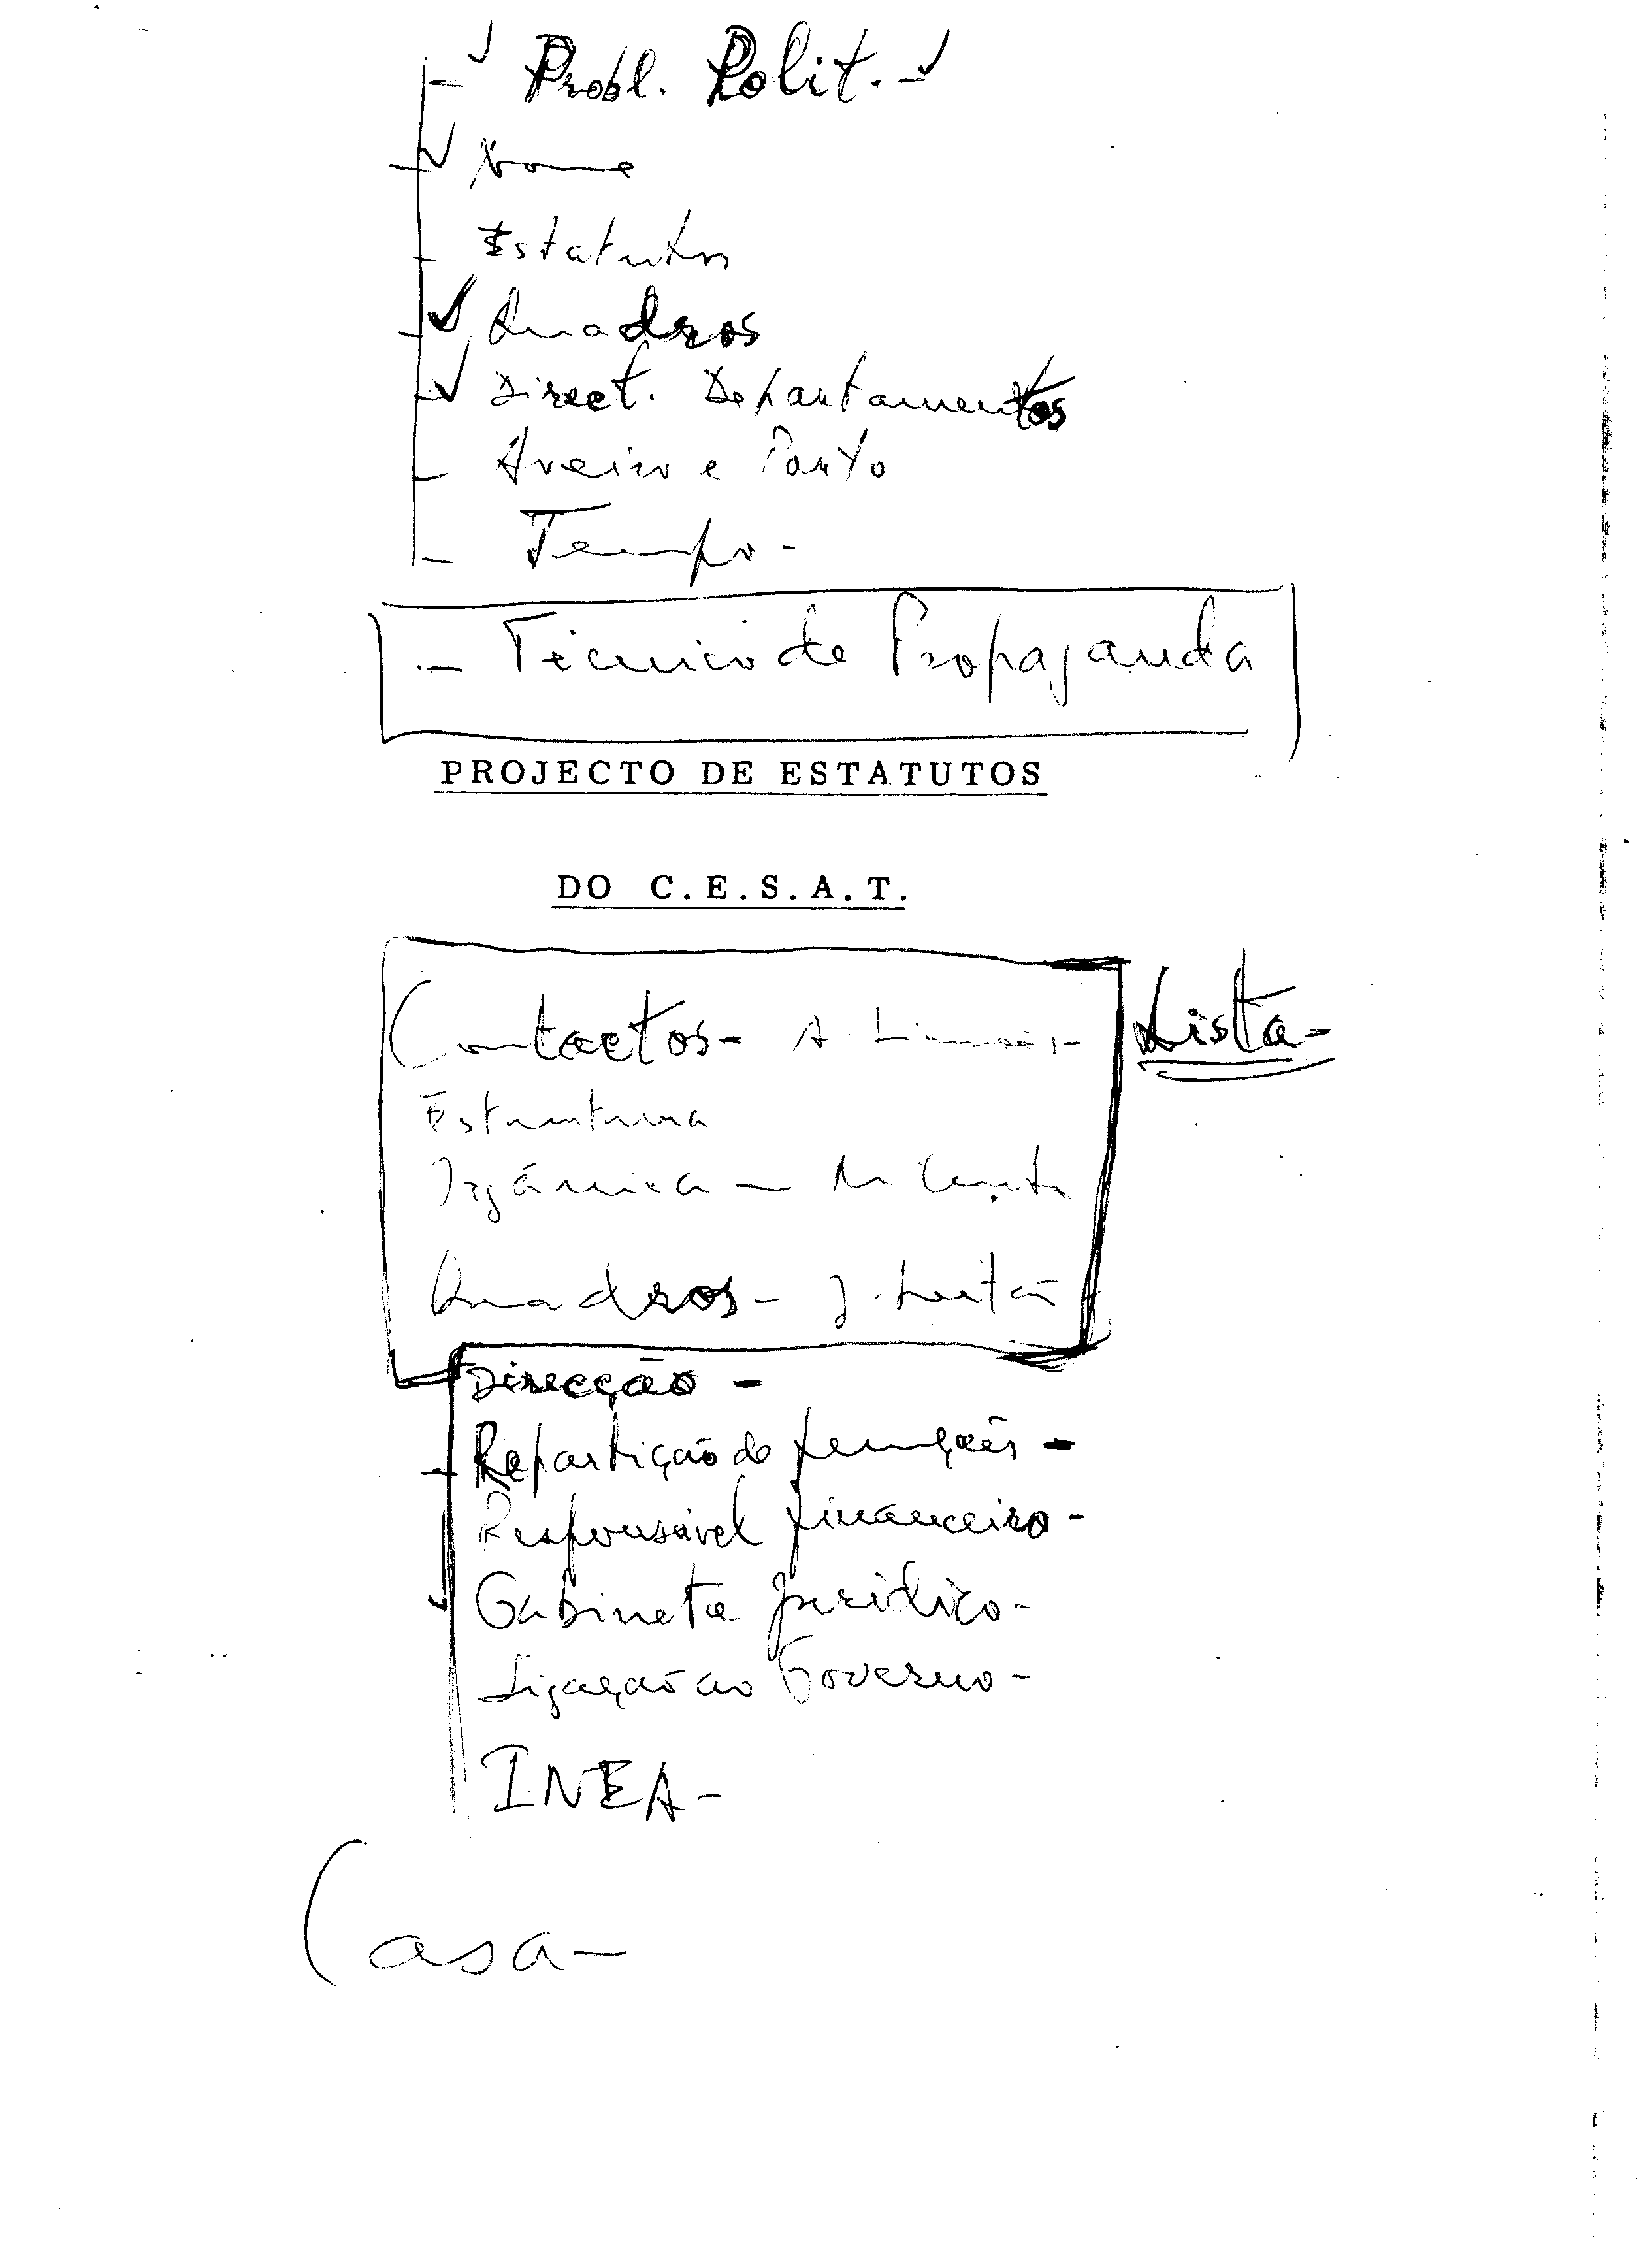 - Probl. Polit. -
- Nome
- Estatutos
- Quadros
- Direct. Departamentos
- Aveiro e Porto
- Tempo -
- Técnico de Propaganda
PROJECTO DE ESTATUTOS
DO C.E.S.A.T.
Contactos - A.
Lista -
Estrutura
Orgânica -
Quadros - J. Leitão
Direcção -
- Repartição de funções -
Responsável financeiro -
Gabinete Jurídico -
Ligação ao Governo -
INEA -
Casa -